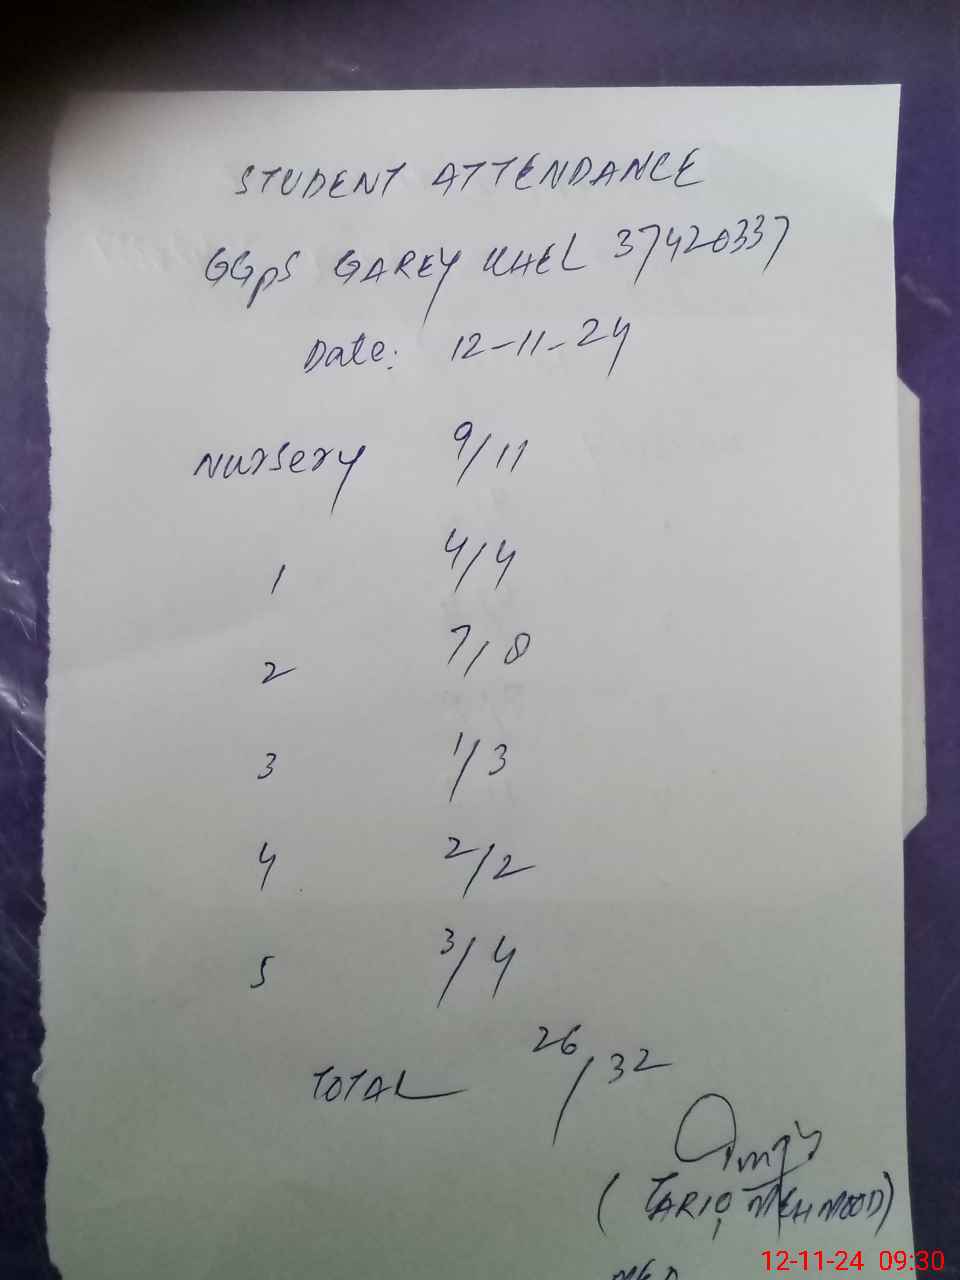 STUDENT ATTENDANCE
GGPS GAREY KHEL 37420337
Date: 12-11-24
Nursery 9/11
1 4/4
2 7/8
3 1/3
4 2/2
5 3/4
TOTAL 26/32
(TARIQ MEHMOOD)
12-11-24 09:30